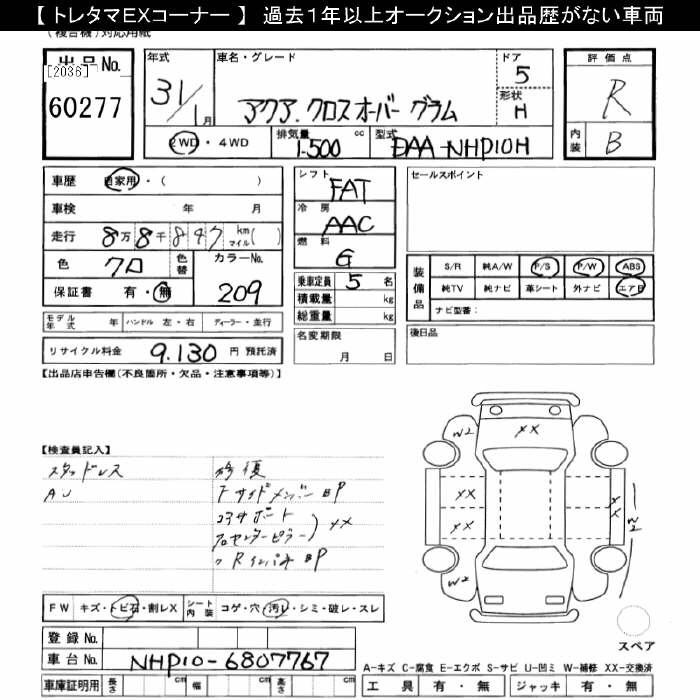 【 トレタマEXコーナー 】 過去1年以上オークション出品歴がない車両
(複合機)対応用紙
出品No.
[2036]
60277
年式
31/1月
車名・グレード
アクア.クロスオーバー グラム
ドア
5
形状
H
2WD・4WD
排気量
1.500 cc
型式
DAA-NHP10H
評価点
R
内装
B
車歴 自家用・( )
車検 年 月
走行 8万8千847 km マイル( )
色 クロ 色替 カラーNo.
209
保証書 有・無
モデル年式 年 ハンドル 左・右 ディーラー・並行
リサイクル料金 9.130 円 預託済
シフト
FAT
冷房
AAC
燃料
G
乗車定員 5 名
積載量 kg
総重量 kg
名変期限
月 日
セールスポイント
装備品
S/R 純A/W P/S P/W ABS
純TV 純ナビ 革シート 外ナビ エアB
ナビ型番:
後日品
【出品店申告欄(不良箇所・欠品・注意事項等)】
【検査員記入】
スタッドレス
AU
修復
F サイドメンバー BP
コアサポート
センターピラー
XX
R インパネ BP
W2
XX
XX
XX
XX
W2
W2
スペア
FW キズ・トビ石・割レX シート内装 コゲ・穴・汚レ・シミ・破レ・スレ
登録No.
車台No. NHP10-6807767
車庫証明用 長さ cm 幅 cm 高さ cm
A-キズ C-腐食 E-エクボ S-サビ U-凹ミ W-補修 XX-交換済
工具 有・無 ジャッキ 有・無